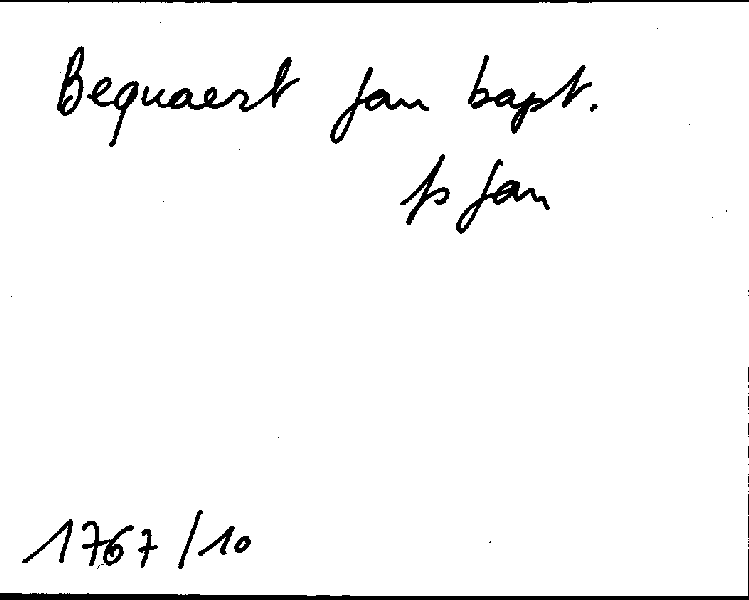 Bequaert Jan bapt.
fs Jan
1767/10